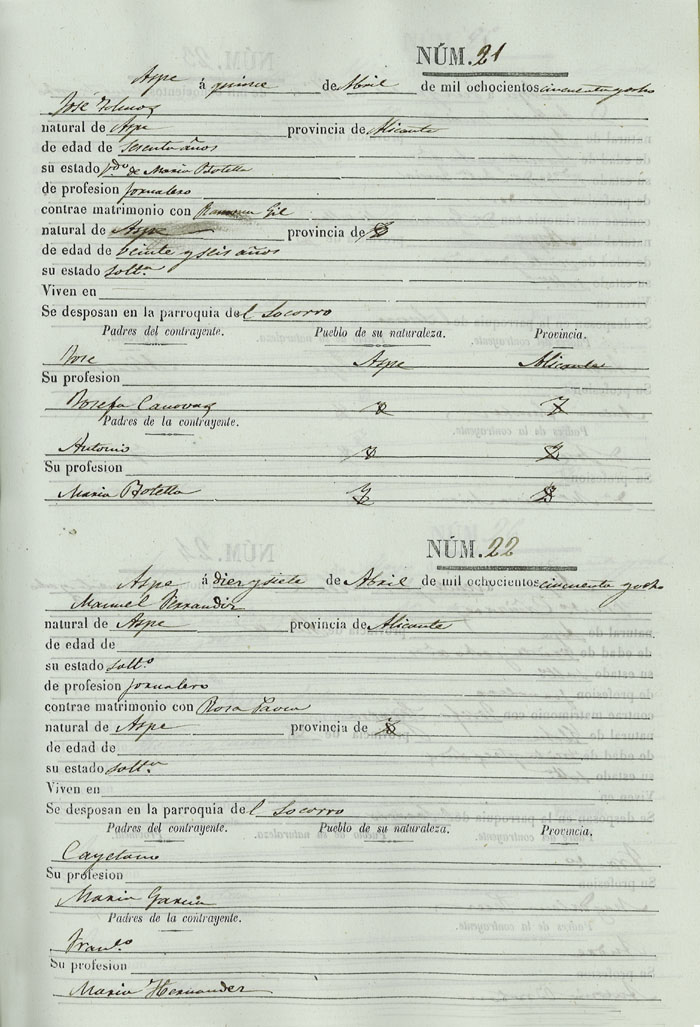 NÚM. 21
Aspe á quince de Abril de mil ochocientos cincuenta y ocho
José
natural de Aspe provincia de Alicante
de edad de sesenta años
su estado v.do de Maria Botella
de profesion jornalero
contrae matrimonio con Gil
natural de Aspe provincia de
de edad de veinte y seis años
su estado solt.a
Viven en
Se desposan en la parroquia del Socorro
Padres del contrayente. Pueblo de su naturaleza. Provincia.
Jose Aspe Alicante
Su profesion
Josefa Canovas
Padres de la contrayente.
Antonio
Su profesion
Maria Botella
NÚM. 22
Aspe á diez y siete de Abril de mil ochocientos cincuenta y ocho
Manuel
natural de Aspe provincia de Alicante
de edad de
su estado solt.o
de profesion jornalero
contrae matrimonio con Rosa Pavia
natural de Aspe provincia de
de edad de
su estado solt.a
Viven en
Se desposan en la parroquia del Socorro
Padres del contrayente. Pueblo de su naturaleza. Provincia,
Cayetano
Su profesion
Maria Garcia
Padres de la contrayente.
Fran.co
Su profesion
Maria Hernandez